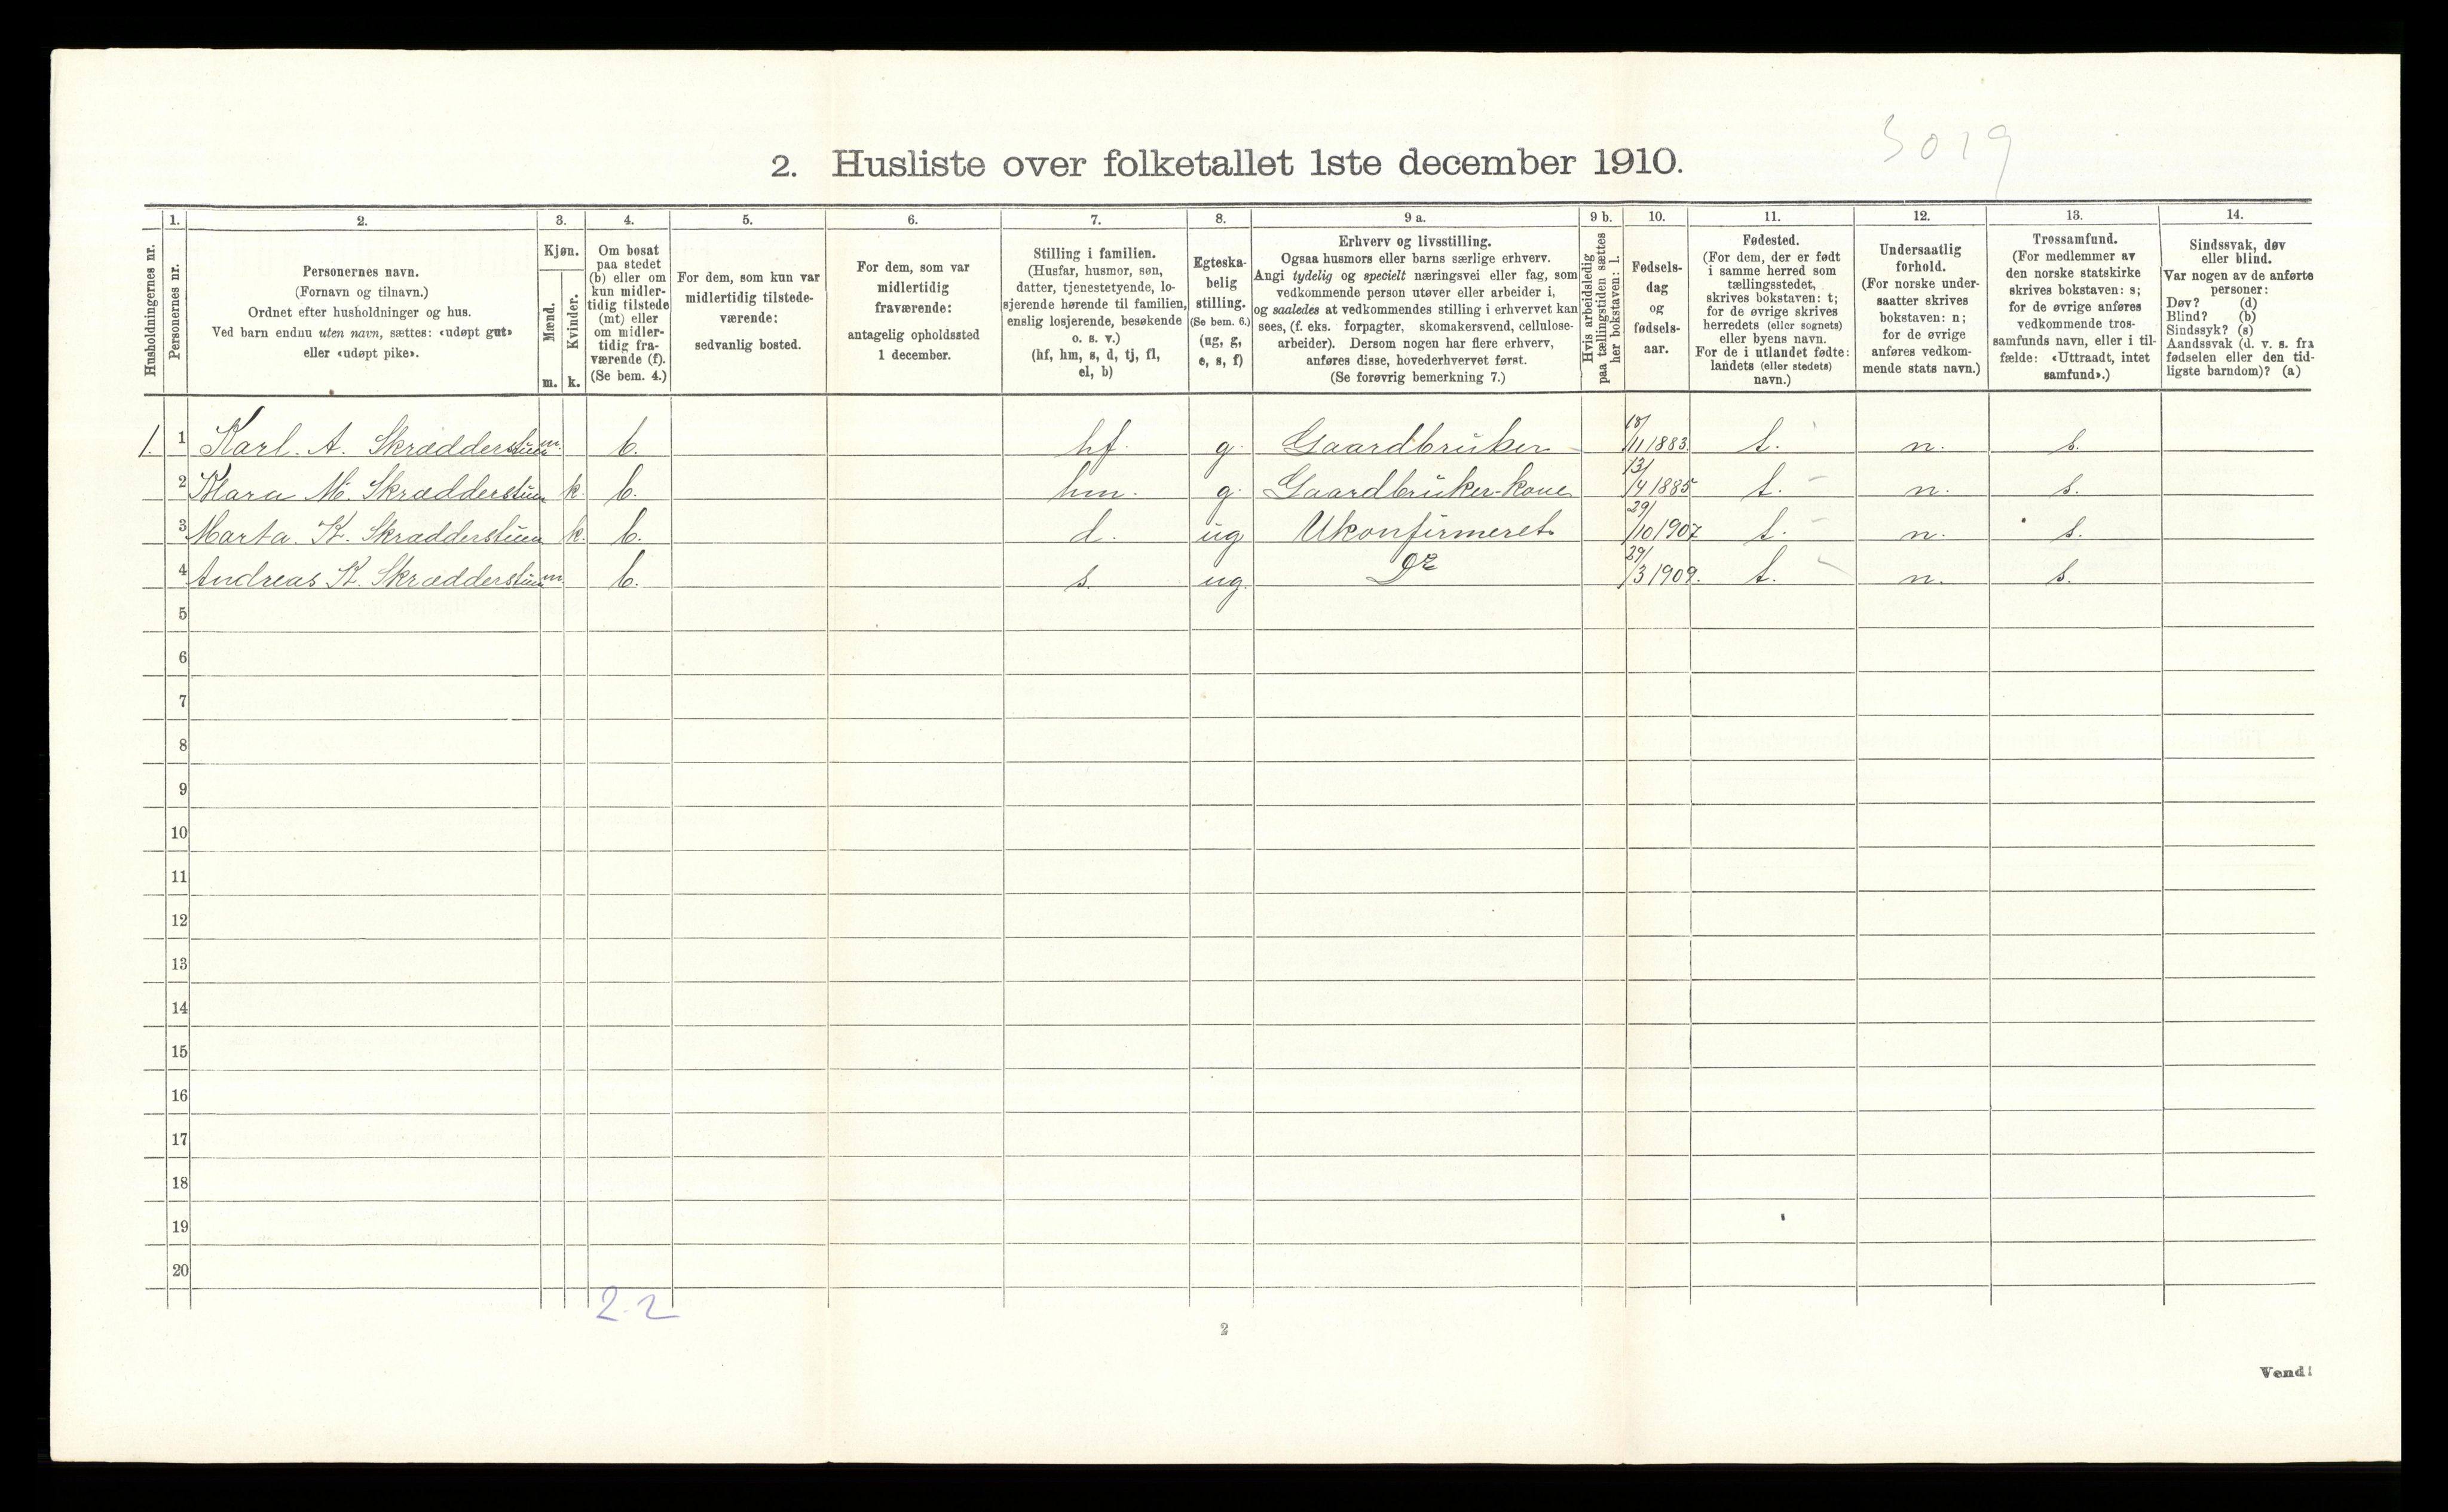 3019
2. Husliste over folketallet 1ste december 1910.
Husholdningernes nr.
1.
Personernes nr.
2.
Personernes navn.
(Fornavn og tilnavn.)
Ordnet efter husholdninger og hus.
Ved barn endnu uten navn, sættes: «udøpt gut»
eller «udøpt pike».
3.
Kjøn.
Mænd.
Kvinder.
m. k.
4.
Om bosat
paa stedet
(b) eller om
kun midler-
tidig tilstede
(mt) eller
om midler-
tidig fra-
værende (f).
(Se bem. 4.)
5.
For dem, som kun var
midlertidig tilstede-
værende:
sedvanlig bosted.
6.
For dem, som var
midlertidig
fraværende:
antagelig opholdssted
1 december.
7.
Stilling i familien.
(Husfar, husmor, søn,
datter, tjenestetyende, lo-
sjerende hørende til familien,
enslig losjerende, besøkende
o. s. v.)
(hf, hm, s, d, tj, fl,
el, b)
8.
Egteska-
belig
stilling.
(Se bem. 6.)
(ug, g,
e, s, f)
9 a.
Erhverv og livsstilling.
Ogsaa husmors eller barns særlige erhverv.
Angi tydelig og specielt næringsvei eller fag, som
vedkommende person utøver eller arbeider i,
og saaledes at vedkommendes stilling i erhvervet kan
sees, (f. eks. forpagter, skomakersvend, cellulose-
arbeider). Dersom nogen har flere erhverv,
anføres disse, hovederhvervet først.
(Se forøvrig bemerkning 7.)
9 b.
Hvis arbeidsledig
paa tællingstiden sættes
her bokstaven: l.
10.
Fødsels-
dag
og
fødsels-
aar.
11.
Fødested.
(For dem, der er født
i samme herred som
tællingsstedet,
skrives bokstaven: t;
for de øvrige skrives
herredets (eller sognets)
eller byens navn.
For de i utlandet fødte:
landets (eller stedets)
navn.)
12.
Undersaatlig
forhold.
(For norske under-
saatter skrives
bokstaven: n;
for de øvrige
anføres vedkom-
mende stats navn.)
13.
Trossamfund.
(For medlemmer av
den norske statskirke
skrives bokstaven: s;
for de øvrige anføres
vedkommende tros-
samfunds navn, eller i til-
fælde: «Uttraadt, intet
samfund».)
14.
Sindssvak, døv
eller blind.
Var nogen av de anførte
personer:
Døv? (d)
Blind? (b)
Sindssyk? (s)
Aandssvak (d. v. s. fra
fødselen eller den tid-
ligste barndom)? (a)
1. 1 Karl. A. Skrædderstuen m. b. hf. g. Gaardbruker 18/11 1883. t. n. s.
2 Klara M. Skrædderstuen k. b. hm. g. Gaardbruker-kone 13/4 1885 t. n. s.
3 Marta. K. Skrædderstuen k. b. d. ug Ukonfirmeret 29/10 1907 t. n. s.
4 Andreas K. Skrædderstuen m b. s. ug. Do 29/3 1909. t. n. s.
5
6
7
8
9
10
11
12
13
14
15
16
17
18
19
20
2-2
2
Vend!